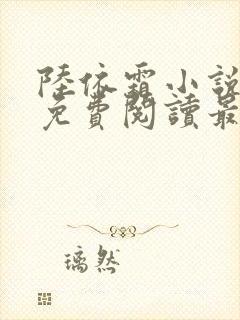 陸依霜小說
免費閱讀最
璃然